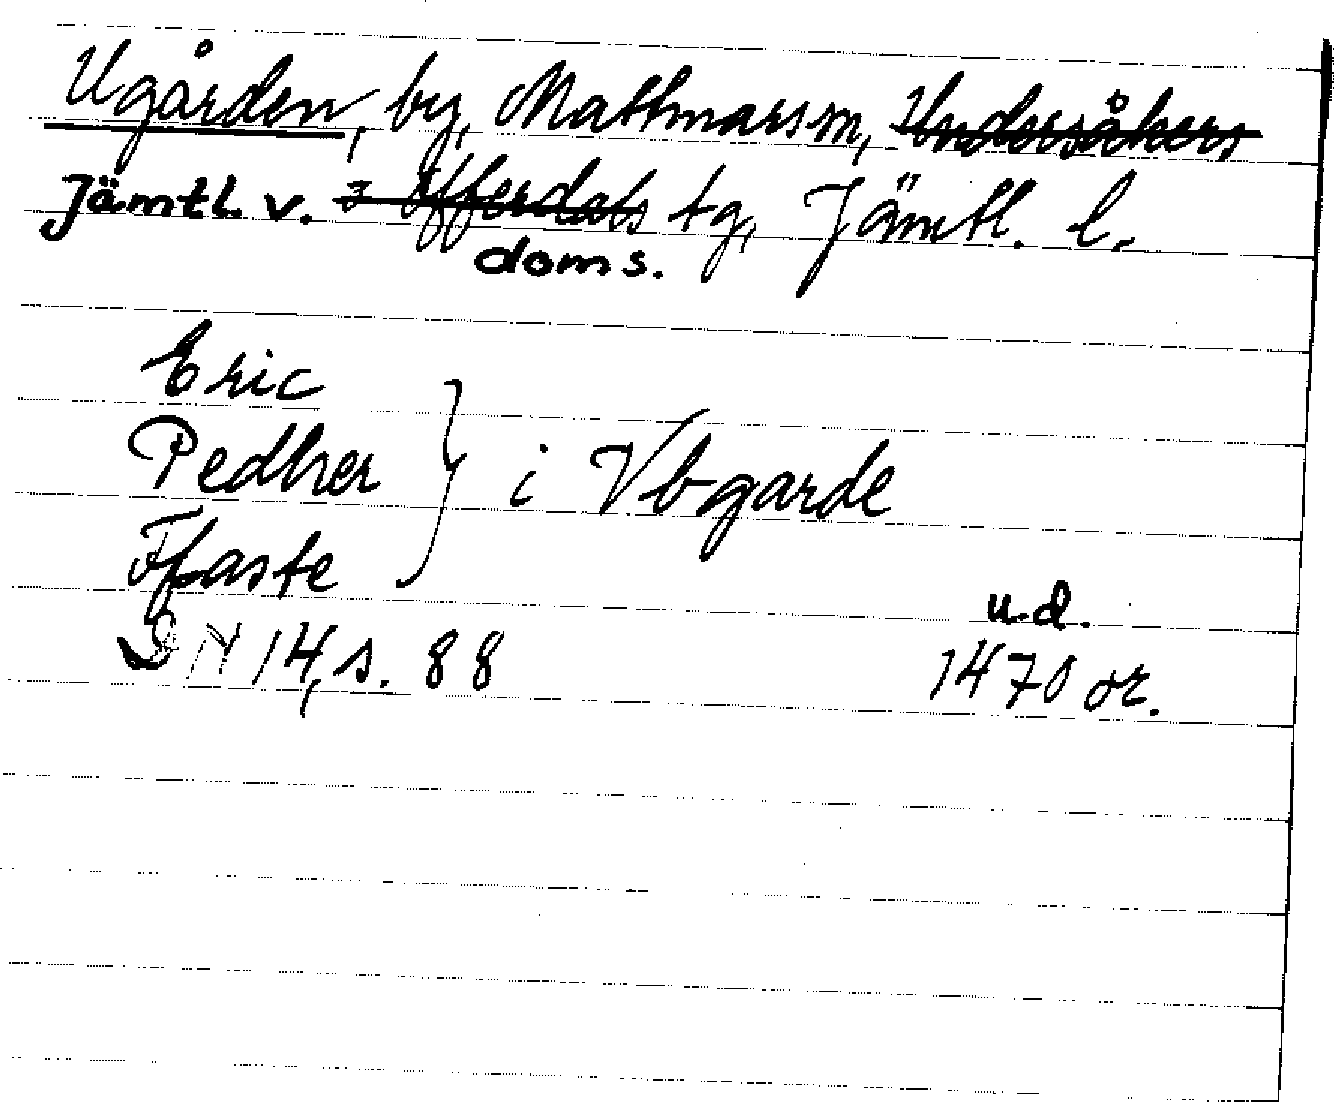 Ugården, by, Mattmars sn, Undersåkers
Jämtl. v. o Offerdals tg, Jämtl. l.
doms.
Eric
Pedher } i Vbgarde
Ffaste
u.d.
DN 14, s. 88 1470 or.